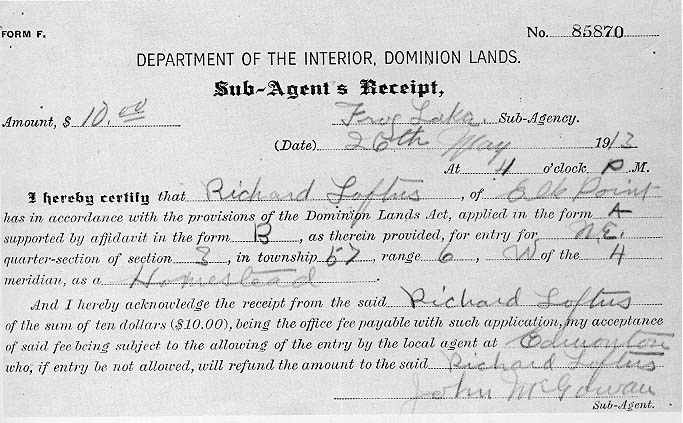 FORM F. No. 85870
DEPARTMENT OF THE INTERIOR, DOMINION LANDS.
Sub-Agent's Receipt,
Amount, $ 10.00 Frog Lake. Sub-Agency.
(Date) 26th May 1913
At 4 o'clock P M.
I hereby certify that Richard Loftus, of Elk Point
has in accordance with the provisions of the Dominion Lands Act, applied in the form A
supported by affidavit in the form B, as therein provided, for entry for N.E.
quarter-section of section 3, in township 57, range 6, W of the 4
meridian, as a Homestead.
And I hereby acknowledge the receipt from the said Richard Loftus
of the sum of ten dollars ($10.00), being the office fee payable with such application, my acceptance
of said fee being subject to the allowing of the entry by the local agent at Edmonton
who, if entry be not allowed, will refund the amount to the said Richard Loftus
John McGowan
Sub-Agent.